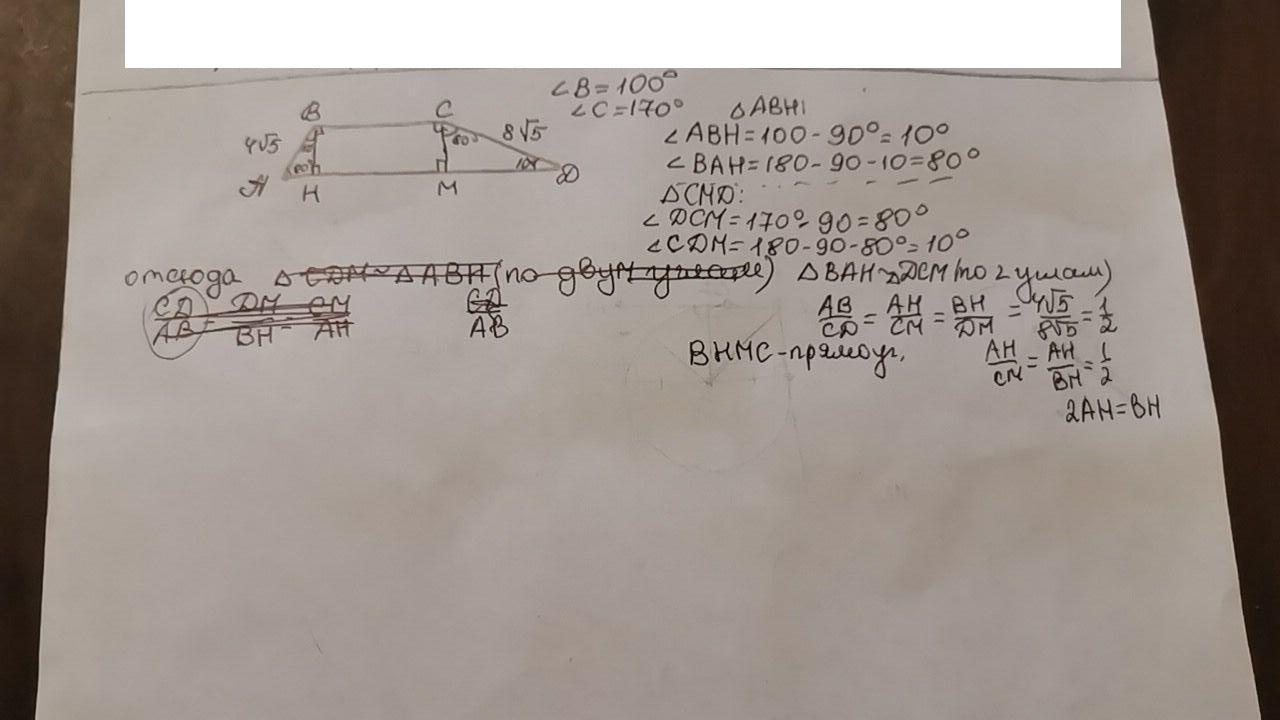 ∠B=100°
∠C=170°
△ABH:
B C
4√5 80° 8√5
∠ABH=100-90°=10°
80° 10°
∠BAH=180-90-10=80°
A H M D
△CMD:
∠DCM=170°-90=80°
∠CDM=180-90-80°=10°
отсюда △CDM~△ABH(по двум углам) △BAH~DCM(по 2 углам)
CD/AB=DM/BH=CM/AH CD/AB AB/CD=AH/CM=BH/DM=4√5/8√5=1/2
BHMC-прямоуг. AH/CM=AH/BH=1/2
2AH=BH